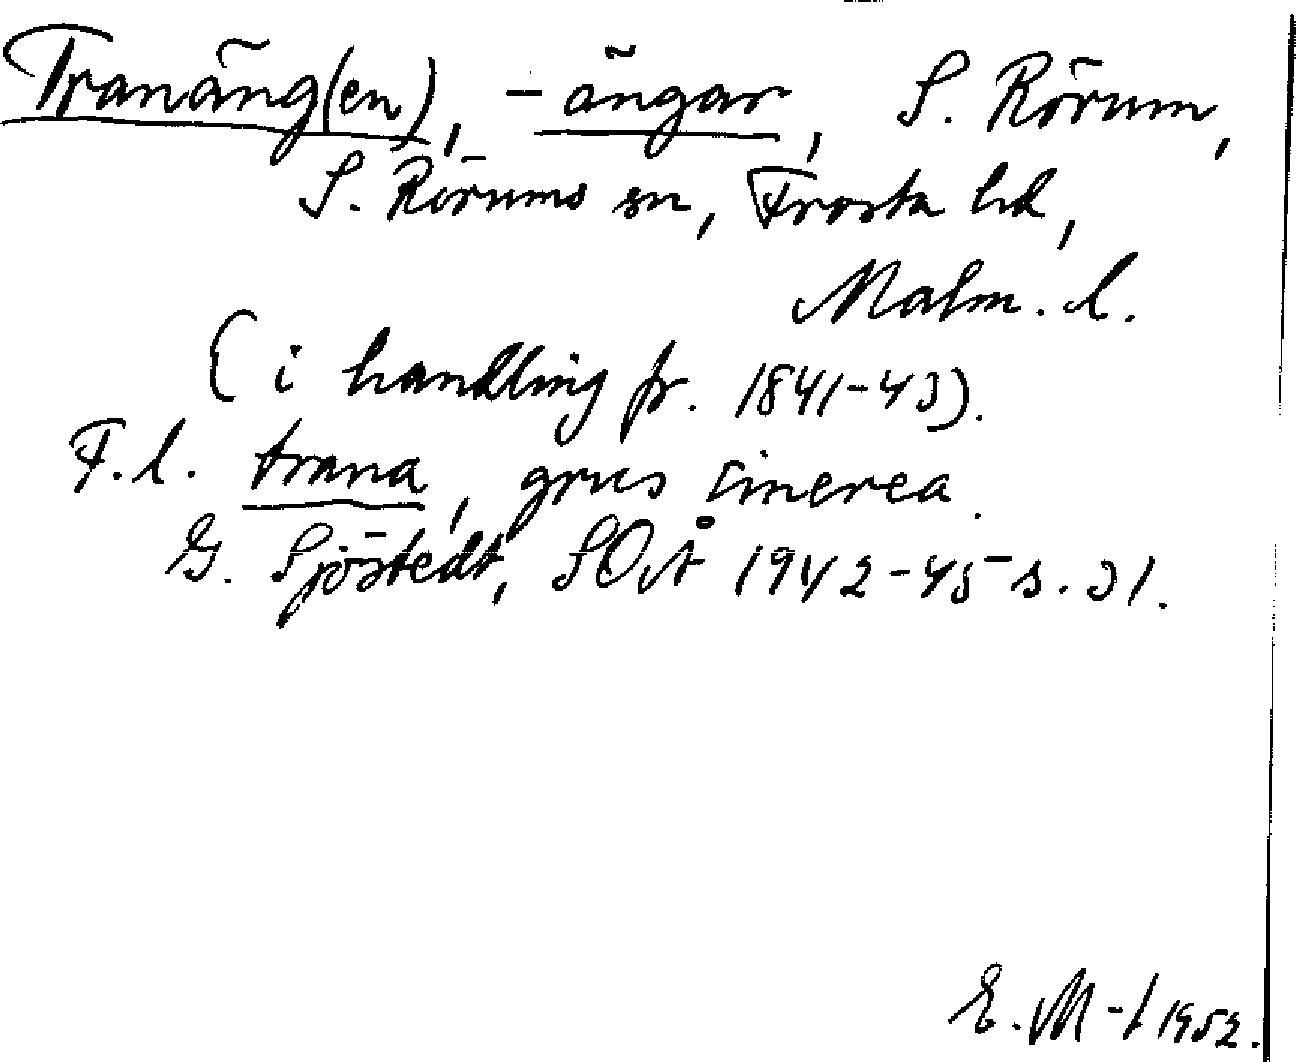 Tranäng(en), -ängar, S. Rörum,
S. Rörums sn, Frosta hd,
Malm. l.
(i handling fr. 1841-43).
F.l. trana, grus cinerea.
G. Sjöstedt, SOÅ 1942-45 s. 31.
E. M-t 1952.